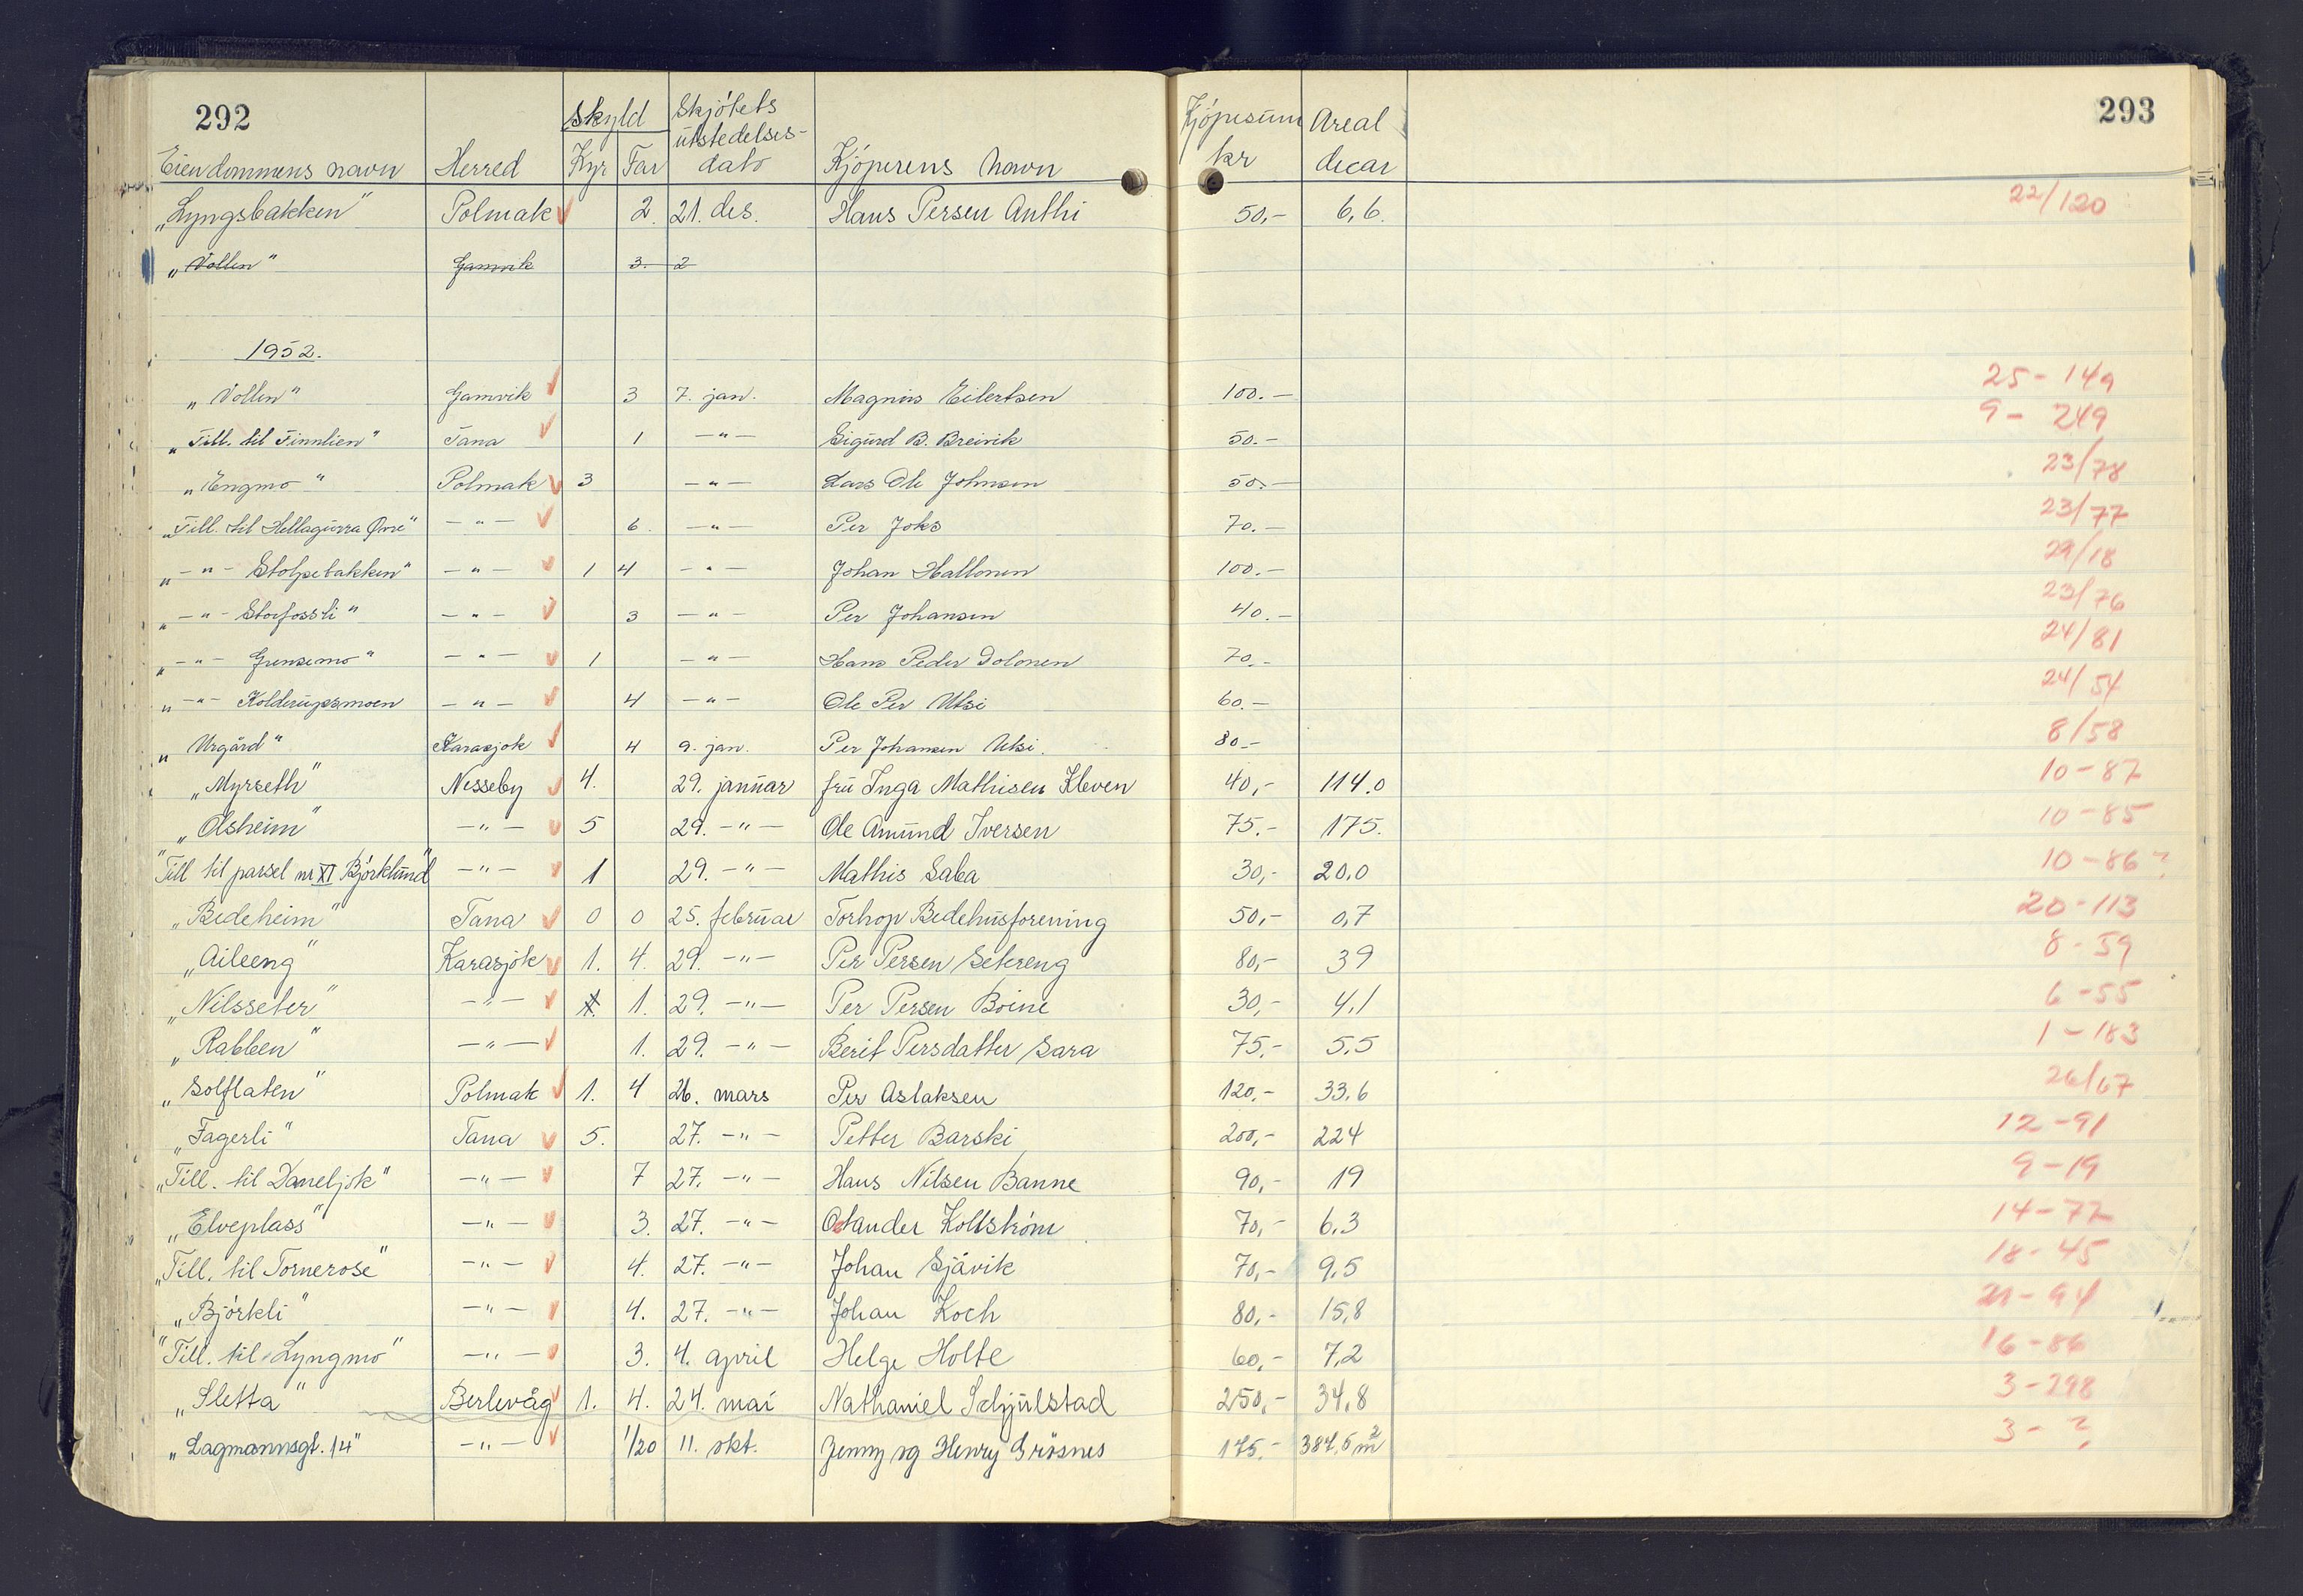 292
293
Eiendommens navn Herred Skyld Kyr Far Skjøtets utstedelses- dato Kjøperens navn Kjøpesum kr Areal decar
„Lyngsbakken" Polmak 2. 21. des. Hans Persen Anthi 50,- 6,6. 22/120
„Vollen" Gamvik 3. 2
1952.
„Vollen" Gamvik 3 7. jan. Magnus Eilertsen 100.- 25-149
„Till. til Finnlien" Tana 1 -"- Sigurd B. Breivik 50.- 9-249
„Engmo" Polmak 3 -"- Lars Ole Johnsen 50.- 23/78
„Till. til Hellagurra Øvre" -"- 6. -"- Per Joks 70.- 23/77
„-"- Stolpebakken" -"- 1 4 -"- Johan Hallonen 100.- 29/18
„-"- Storfossli" -"- 3 -"- Per Johansen 40.- 23/76
„-"- Grensemo" -"- 1 -"- Hans Peder Dolonen 70.- 24/81
„-"- Kolderupsmoen -"- 4 -"- Ole Per Utsi 60.- 24/54
„Urgård" Karasjok 4 9. jan. Per Johansen Utsi. 80.- 8/58
„Myrseth" Nesseby 4. 29. januar fru Inga Mathisen Kleven 40,- 114.0 10-87
„Olsheim" -"- 5 29. -"- Ole Amund Iversen 75.- 175. 10-85
"Till til parsel nr XI Björklund" -"- 1 29. -"- Mathis Saba 30,- 20.0 10-86?
„Bedeheim" Tana 0 0 25. februar Torhop Bedehusforening 50,- 0,7 20-113
„Aileeng" Karasjok 1. 4. 29. -"- Per Persen Setereng 80,- 39 8-59
„Nilsseter" -"- 1. 29. -"- Per Persen Boine 30,- 4,1 6-55
„Rabben" -"- 1. 29. -"- Berit Persdatter Sara 75.- 5.5 1-183
„Solflaten" Polmak 1. 4 26. mars Per Aslaksen 120.- 33,6 26/67
„Fagerli" Tana 5. 27. -"- Petter Barski 200,- 224 12-91
„Till. til Daneljok" -"- 7 27. -"- Hans Nilsen Banne 90,- 19 9-19
„Elveplass" -"- 3. 27. -"- Kollström 70,- 6.3 14-72
„Till. til Tornerose" -"- 4. 27. -"- Johan Sjåvik 70,- 9.5 18-45
„Björkli" -"- 4. 27. -"- Johan Koch 80,- 15,8 21-94
"Till. til Lyngmo" -"- 3. 4. april Helge Holte 60,- 7,2 16-86
„Sletta" Berlevåg 1. 4. 24. mai Nathaniel Schjølstad 250,- 34,8 3-298
„Lagmannsgt. 14" -"- 1/20 11. okt. Jenny og Henry Grösnes 175.- 387,5 m² 3-?